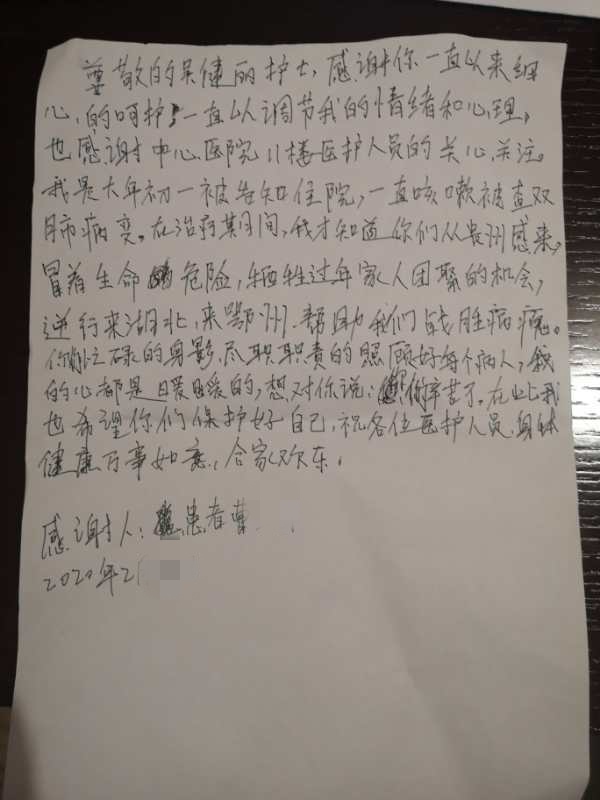 尊敬的吴健丽护士,感谢你一直以来细
心,的呵护,一直以调节我的情绪和心理,
也感谢中心医院11楼医护人员的关心关注。
我是大年初一被告知住院,一直咳嗽被查双
肺病变。在治疗期间,我才知道你们从贵州感来,
冒着生命危险,牺牲过年家人团聚的机会,
逆行来湖北,来鄂州.帮助我们战胜病魔。
你们忙碌的身影,尽职职责的照顾好每个病人,我
的心都是暖暖的,想对你说:你辛苦了。在此我
也希望你们保护好自己,祝各位医护人员,身体
健康万事如意,合家欢乐。
感谢人:患者曹
2020年2